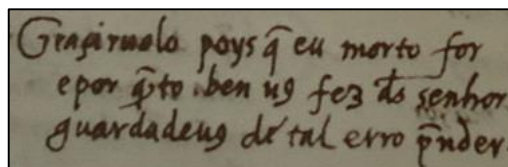 Graçiruolo poys q̄ eu morto for
epor q̄to ben uꝯ fez d̄s senhor
guardadeuꝯ de tal erro p̄nder